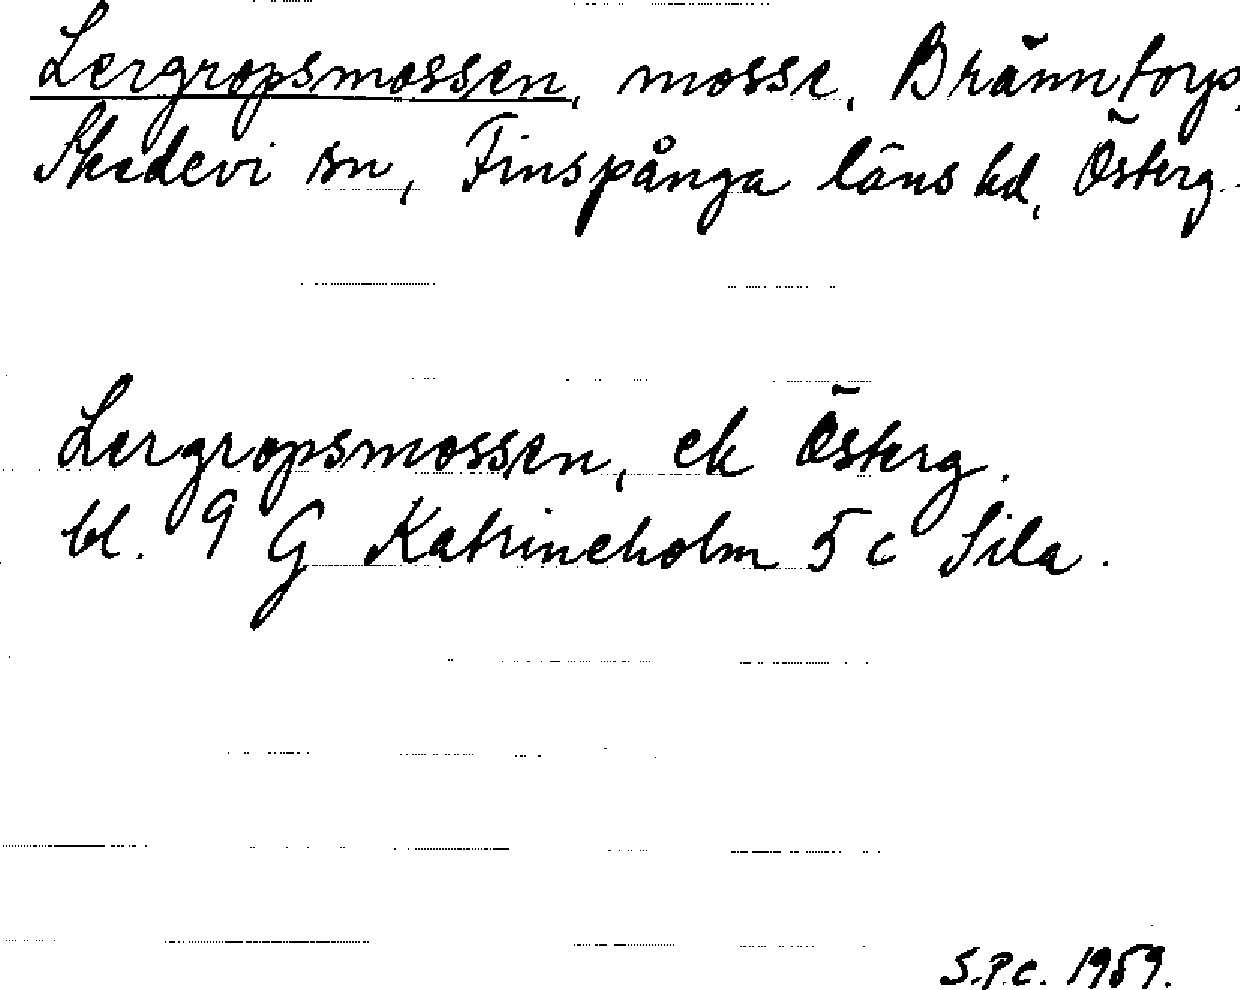 Lergropsmossen, mosse, Bränntorp,
Skedevi sn, Finspånga läns hd, Österg.
Lergropsmossen, ek Österg.
bl. 9 G Katrineholm 5 c Sila.
S.P.C. 1959.